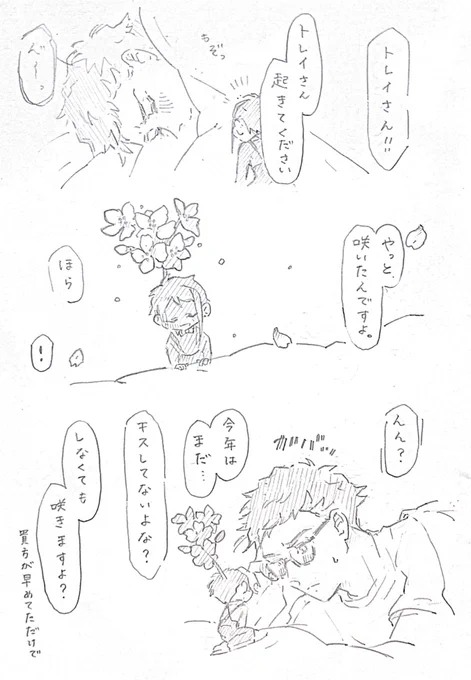 トレイさん!!
もぞっ
トレイさん
起きてください
やっと
咲いたんですよ。
ほら
!
んん?
今年は
まだ…
キスしてないよな?
しなくても
咲きますよ?
貴方が早めてただけで